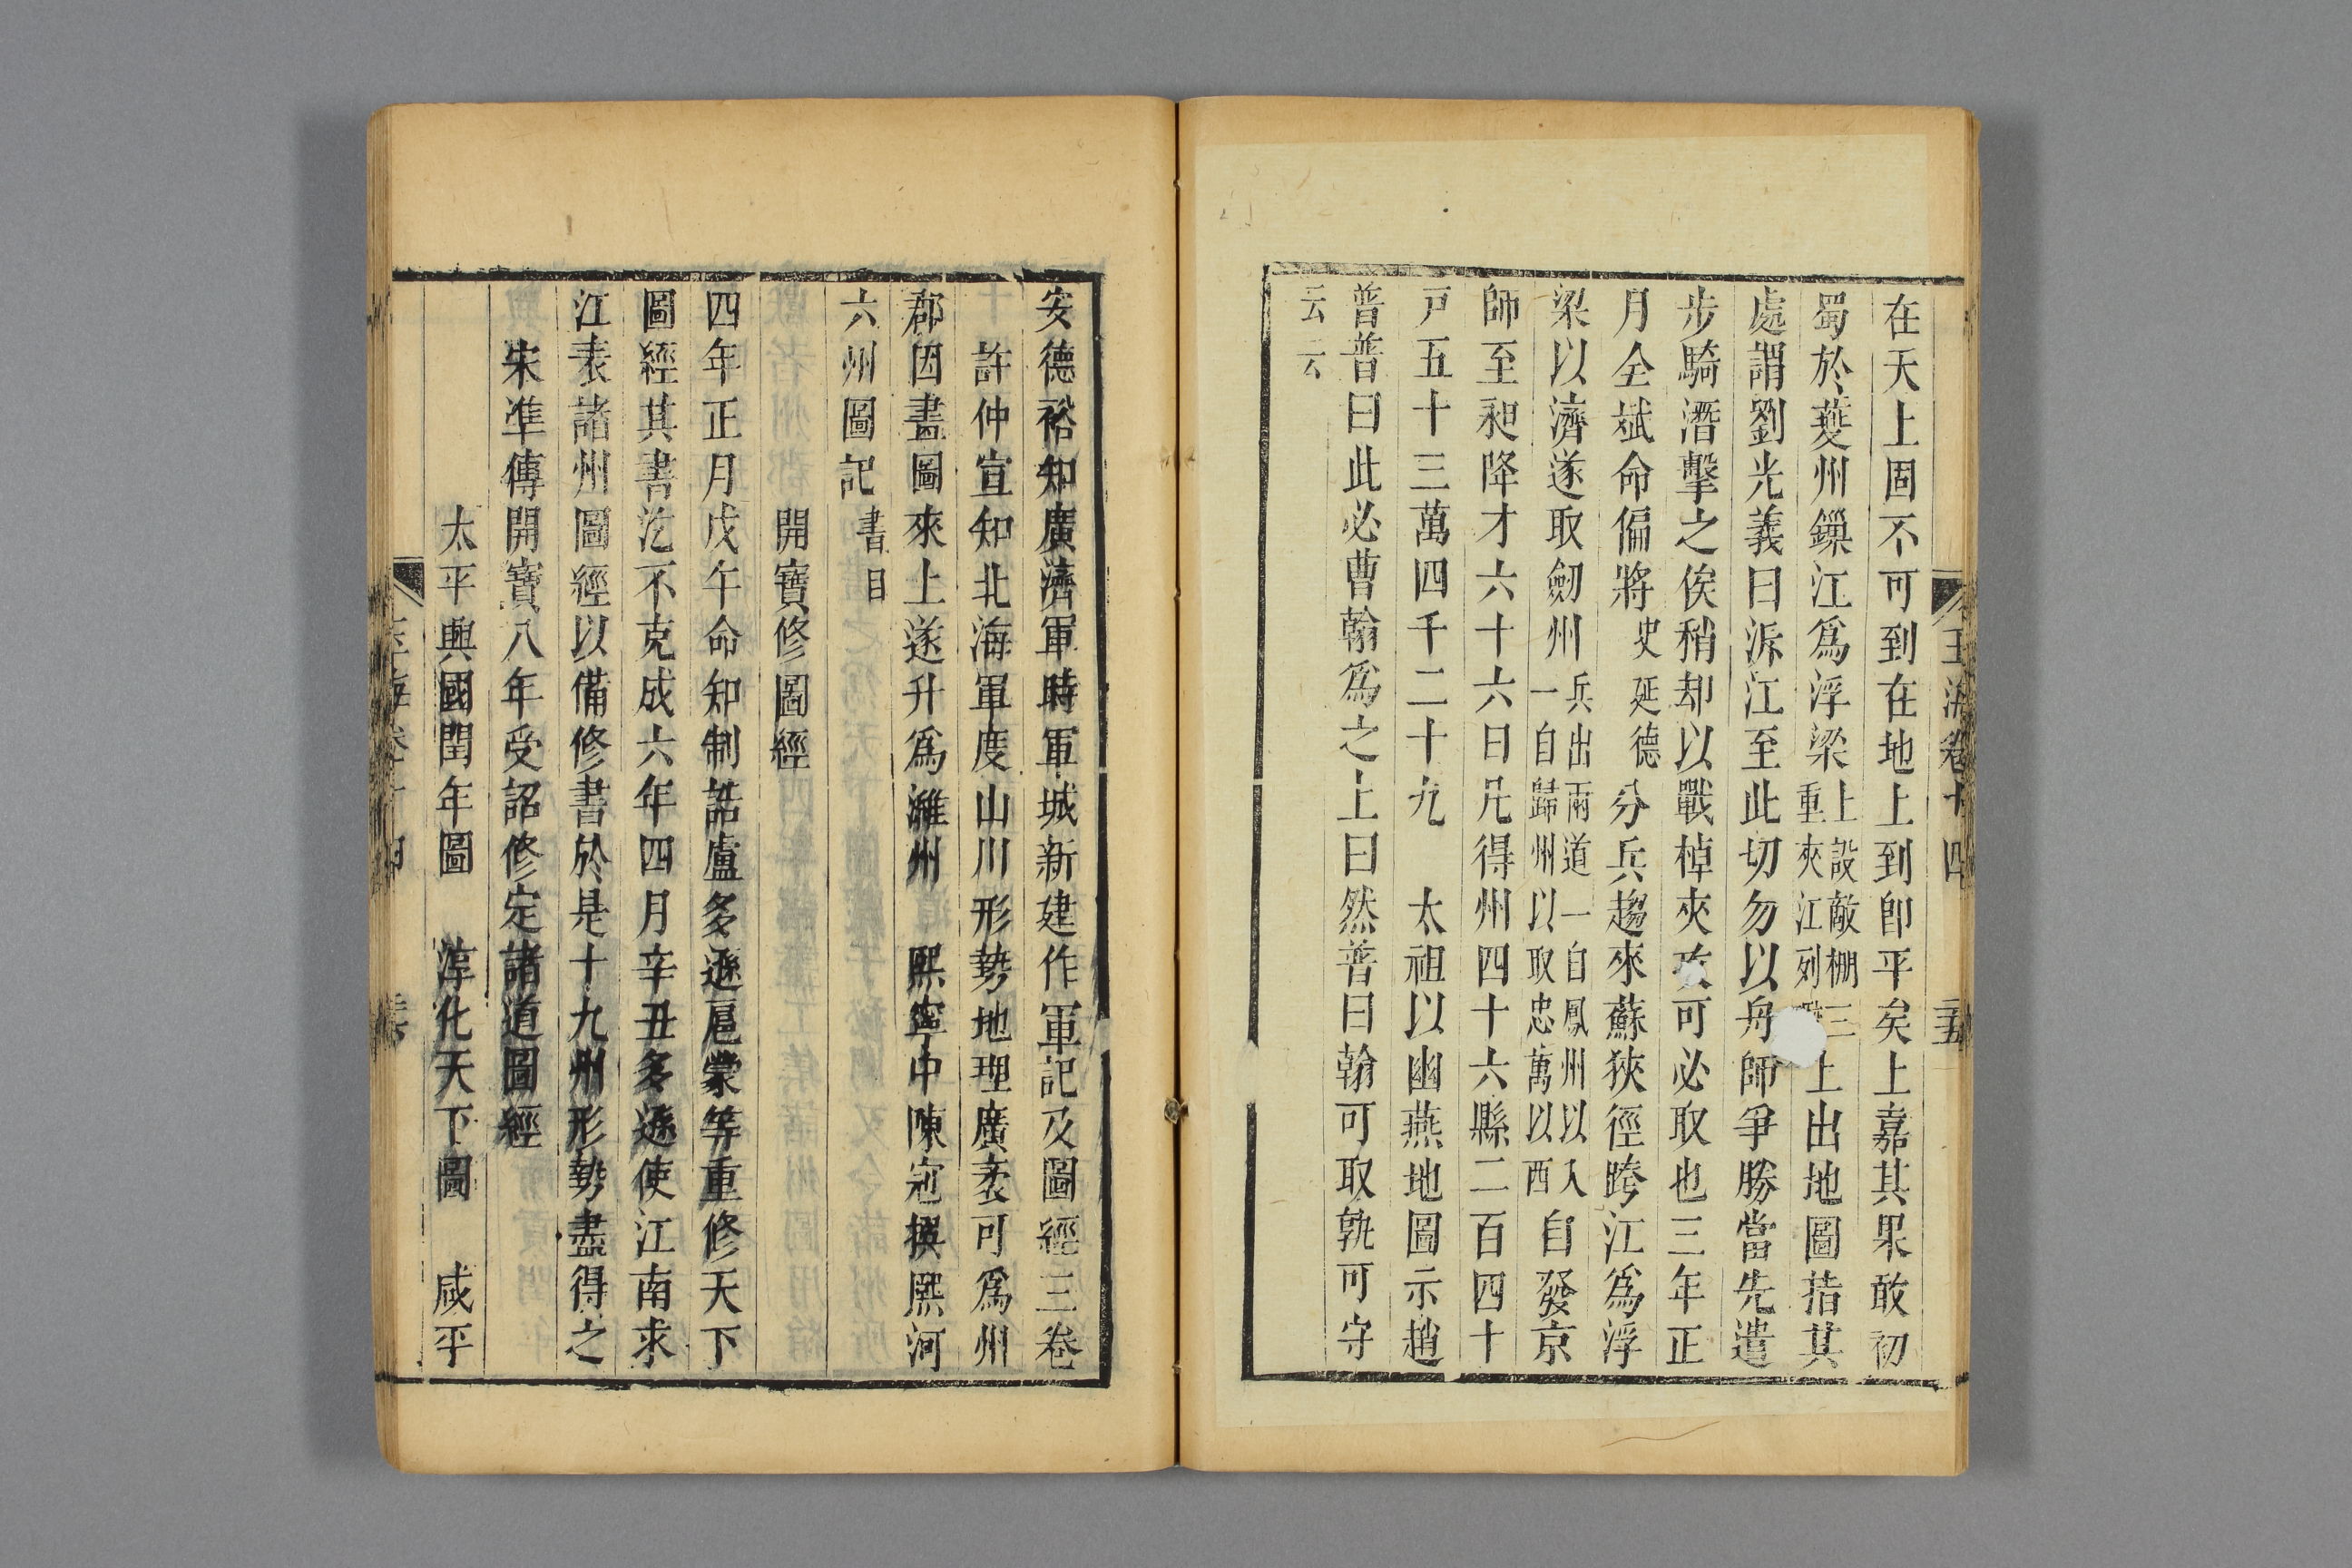 玉海卷十四
在天上固不可到在地上到卽平矣上嘉其果敢初
蜀於夔州鏁江爲浮梁上設敵棚三重夾江列上出地圖指其
處謂劉光義曰泝江至此切勿以舟師爭勝當先遣
步騎潛擊之俟稍却以戰棹夾攻可必取也三年正
月全斌命偏將史延德分兵趨來蘇狹徑跨江爲浮
梁以濟遂取劒州兵出兩道一自鳳州以入一自歸州以取忠萬以西自發京
師至昶降才六十六日凡得州四十六縣二百四十
戸五十三萬四千二十九　太祖以幽燕地圖示趙
普普曰此必曹翰爲之上曰然普曰翰可取孰可守
云云
安德裕知廣濟軍時軍城新建作軍記及圖經三卷
許仲宣知北海軍度山川形勢地理廣袤可爲州
郡因畫圖來上遂升爲濰州　熙寧中陳冦撰熙河
六州圖記書目
開寶修圖經
四年正月戊午命知制誥盧多遜扈蒙等重修天下
圖經其書迄不克成六年四月辛丑多遜使江南求
江表諸州圖經以備修書於是十九州形勢盡得之
宋準傳開寶八年受詔修定諸道圖經
太平興國閏年圖　淳化天下圖　咸平
玉海卷十四